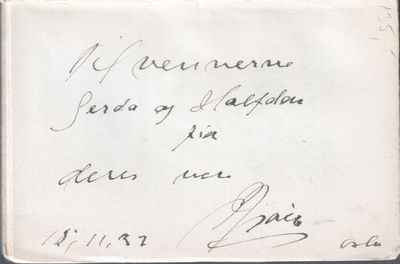 135,
Til vennerne
Gerda og Halfdan
fra
deres ven
15,11,32 Oslo